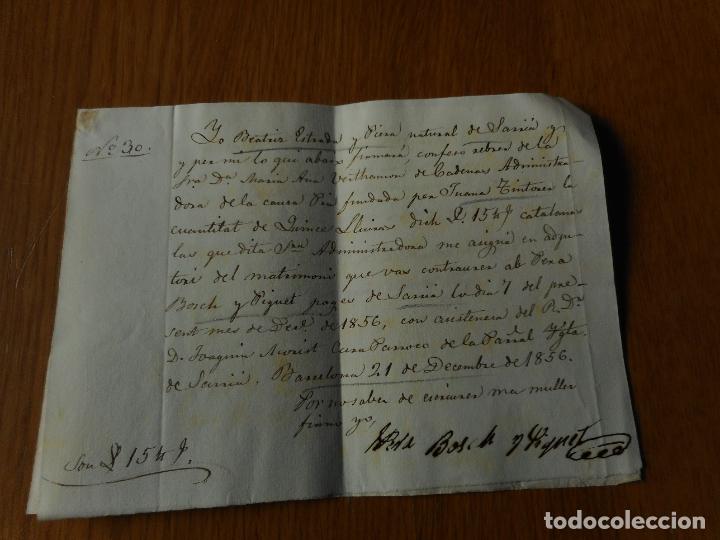 Nº 30.
Yo Beatriz Estrada y Piera natural de Sarriá y
y per mi lo qui abax firmará, confeso rebrer de la
Sra. Da. Maria Ana Verthamon de Cadenas Administra-
dora de la causa Pia fundada per Juana Tintorer la
cuantitat de Quince Lliuras dich £ 15 catalana
las que dita Sra. Administradora me asigná en adju-
tori del matrimoni que vas contraurer ab Pera
Bosch y Piquet pages de Sarriá lo dia 1 del pre-
sent mes de Dese. de 1856, con asistencia del R. Dn.
D. Joaquin Cura Parroco de la Parral. Yglª.
de Sarriá. Barcelona 21 de Decembre de 1856.
Por no saber de escriurer ma muller
firmo yo,
Bosch y Piquet
Son £ 15
todocoleccion.net